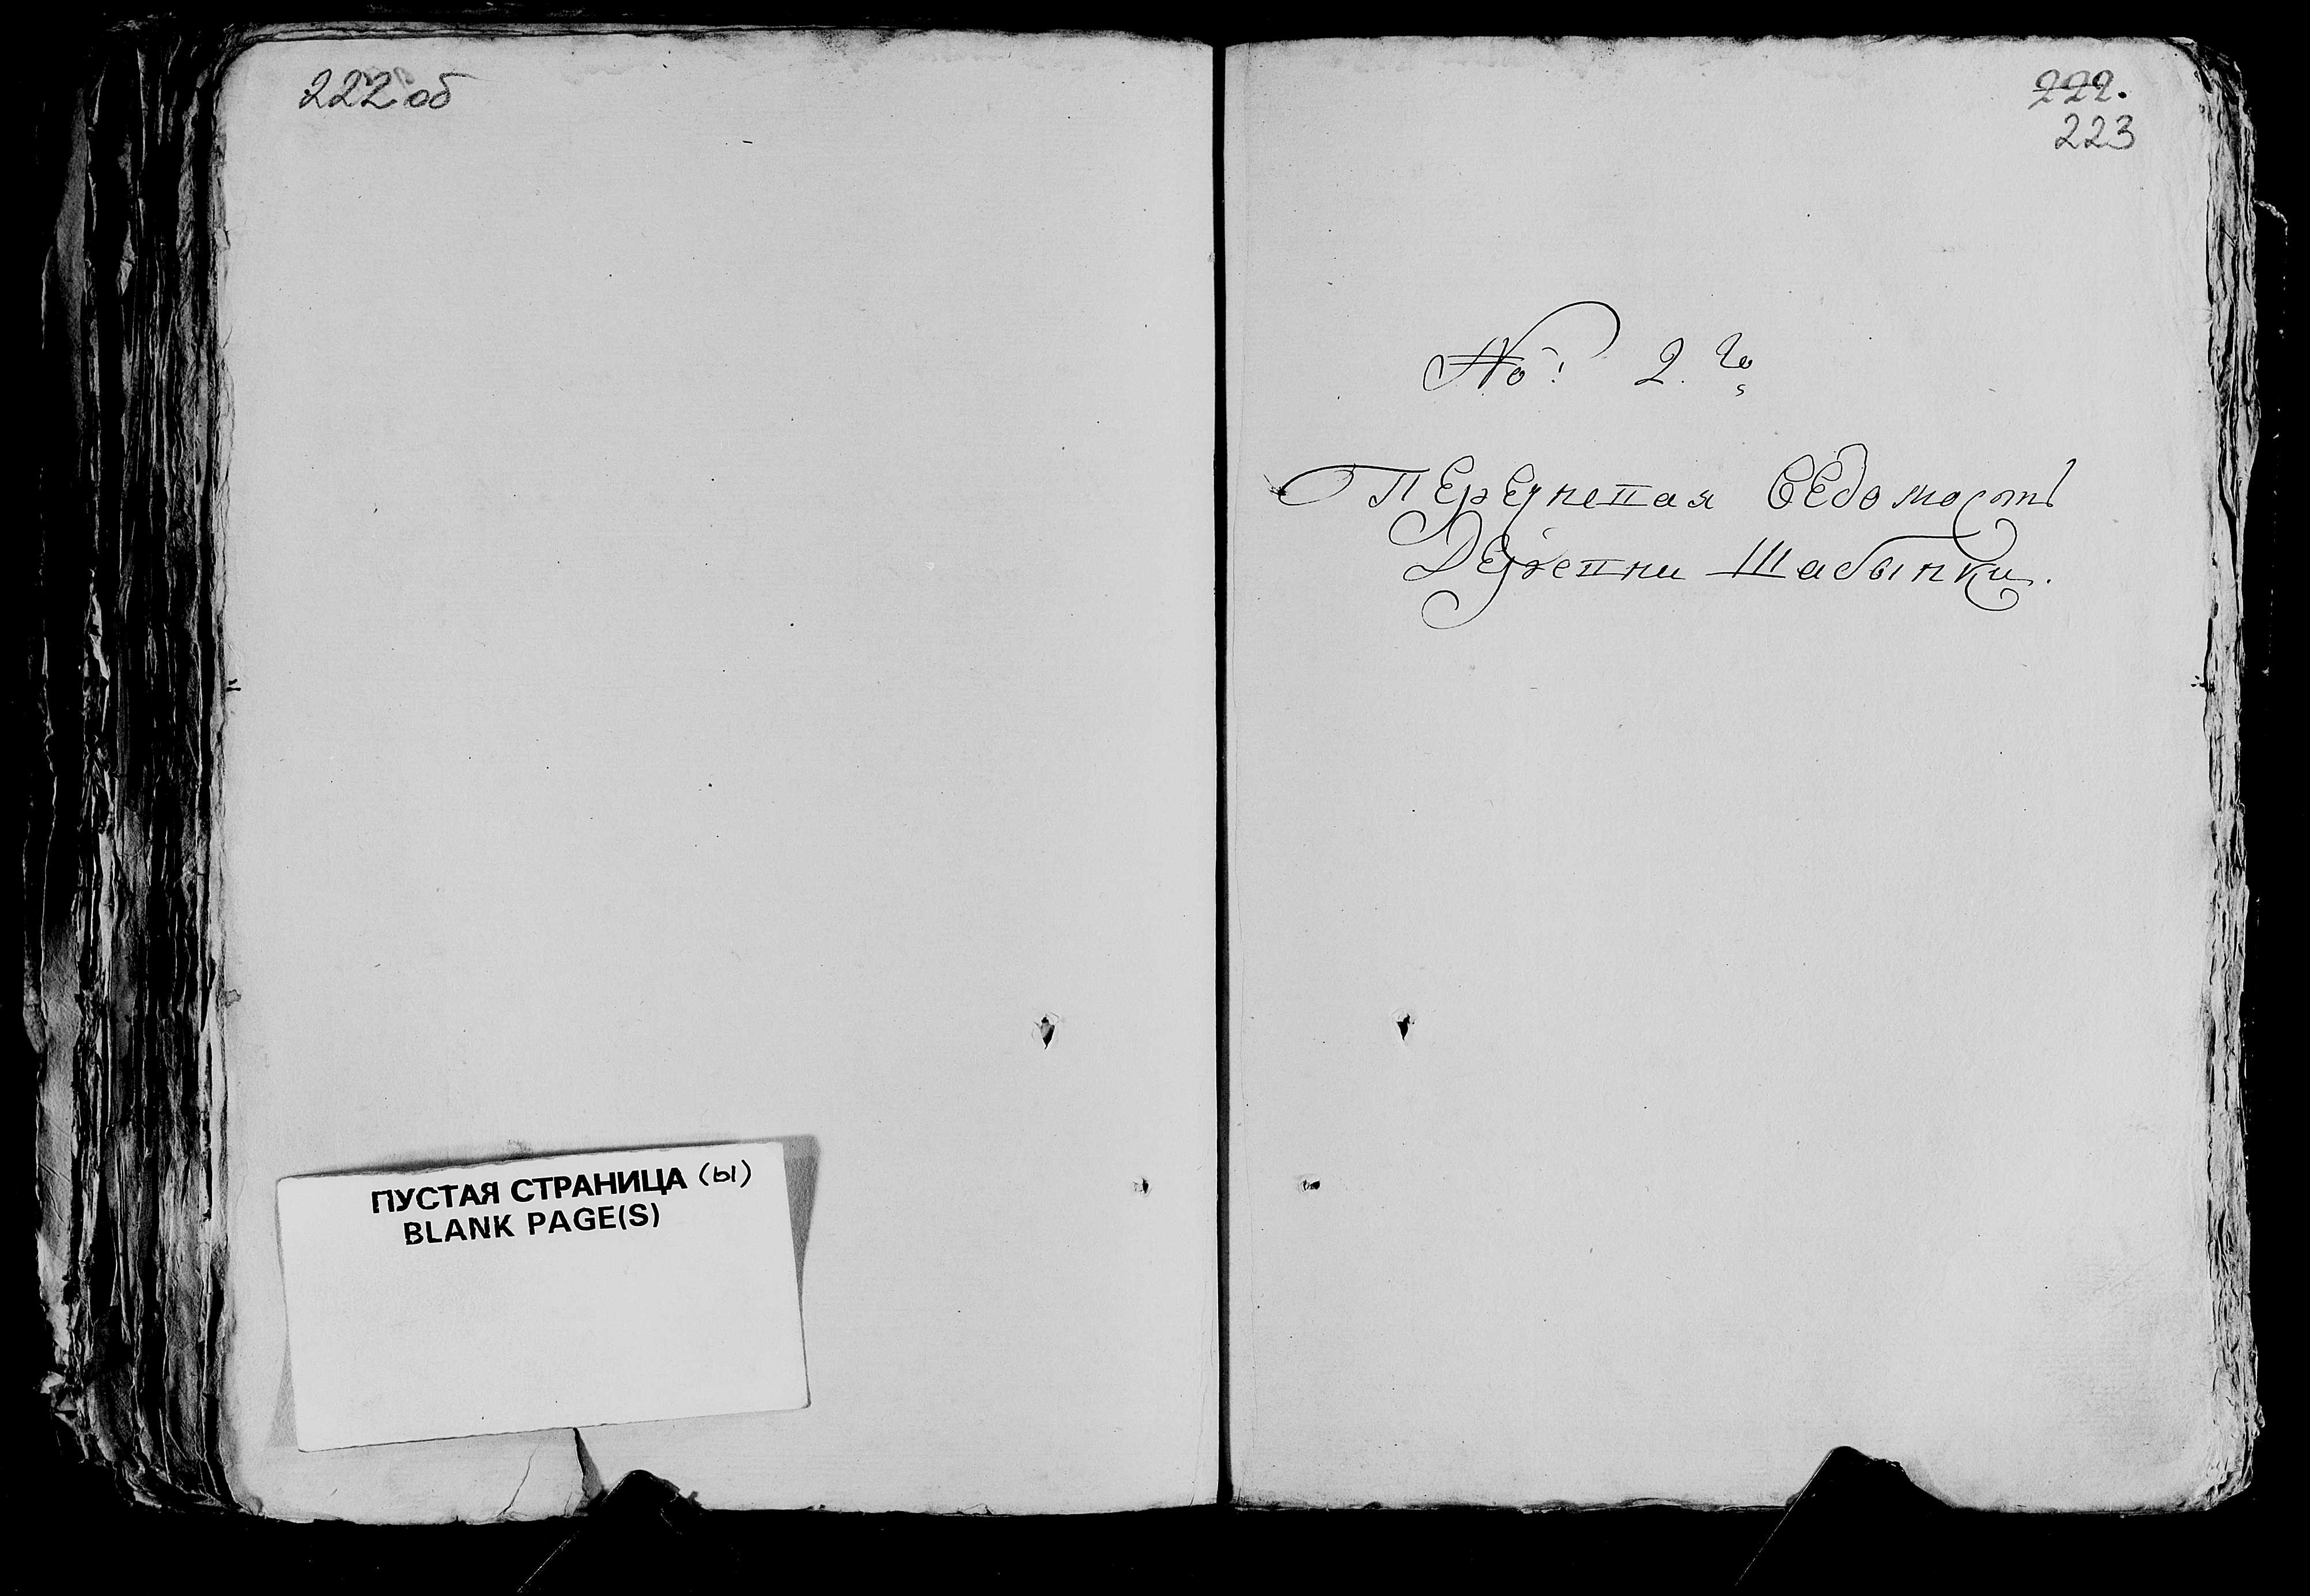 222 об
ПУСТАЯ СТРАНИЦА (ы)
BLANK PAGE(S)
222.
223
№: 2.й
Перечневая ведомость
Деревни Шабынки.